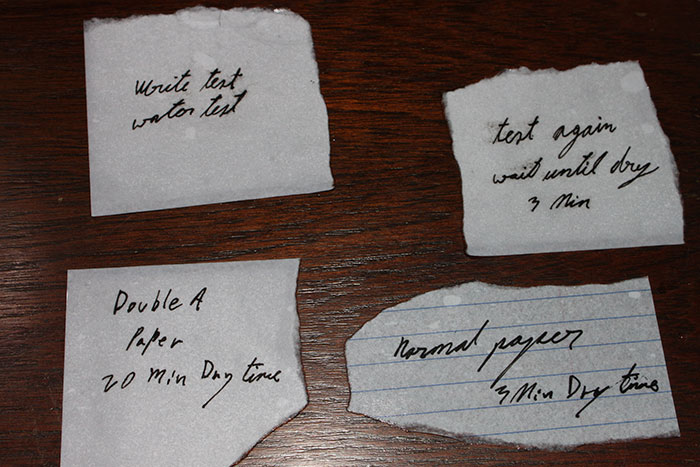 write test
water test
test again
wait until dry
3 Min
Double A
Paper
20 Min Dry time
normal paper
3 Min Dry time